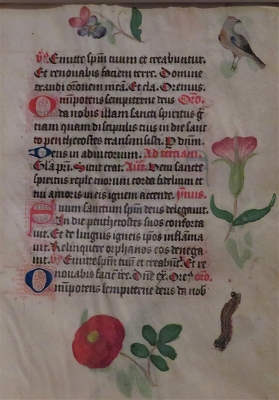 v̄. Emitte sp̄m tuum et creabuntur.
Et renovabis faciem terre. Domine
exaudi orōnem meā. Et cla. Oremus.
Omīpotens sempiterne deus Oro.
da nobis illam sancti spiritus g̃
tiam quam discipulis tuis in die sanc
to penthecostes transmisisti. P dñm.
Deus in adiutorium. Ad terciam.
Gl'a pr̄i. Sicut erat. Añ. Veni sancte
spiritus reple tuorum corda fidelium et
tui amoris in eis ignem accende. ymnus.
Spiritum sanctum sp̄m deus delegavit
In die penthecostes suos conforta
vit. Et de linguis igneis ip̄os inflāma
vit. Relinquere orphanos eos denega
vit. v̄. Emitte sp̄m tuū et creabūt. Et re
novabis faciē tr̄e. Dñe ex. Ore. oro.
Omīpotens sempiterne deus da nob